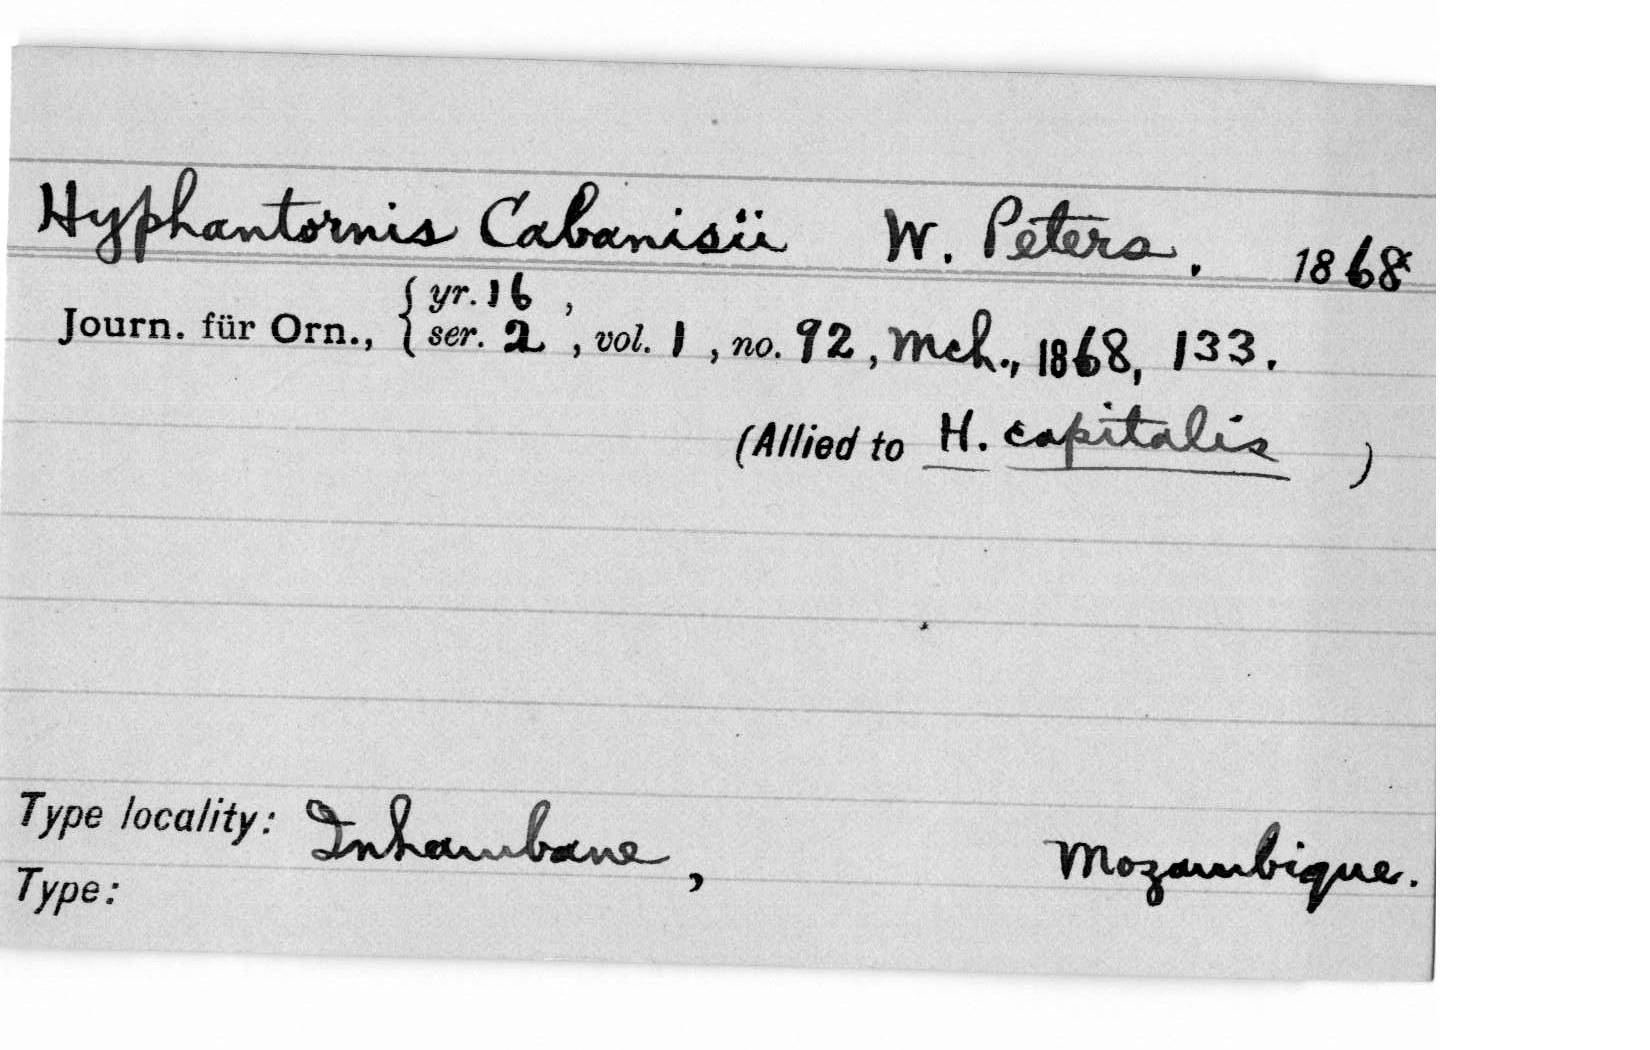 Hyphantornis Cabanisii W. Peters. 1868
Journ. für Orn., { yr. 16 ,
ser. 2 , vol. 1 , no. 92 , Mch., 1868, 133.
(Allied to H. capitalis )
Type locality: Inhambane , Mozambique.
Type: